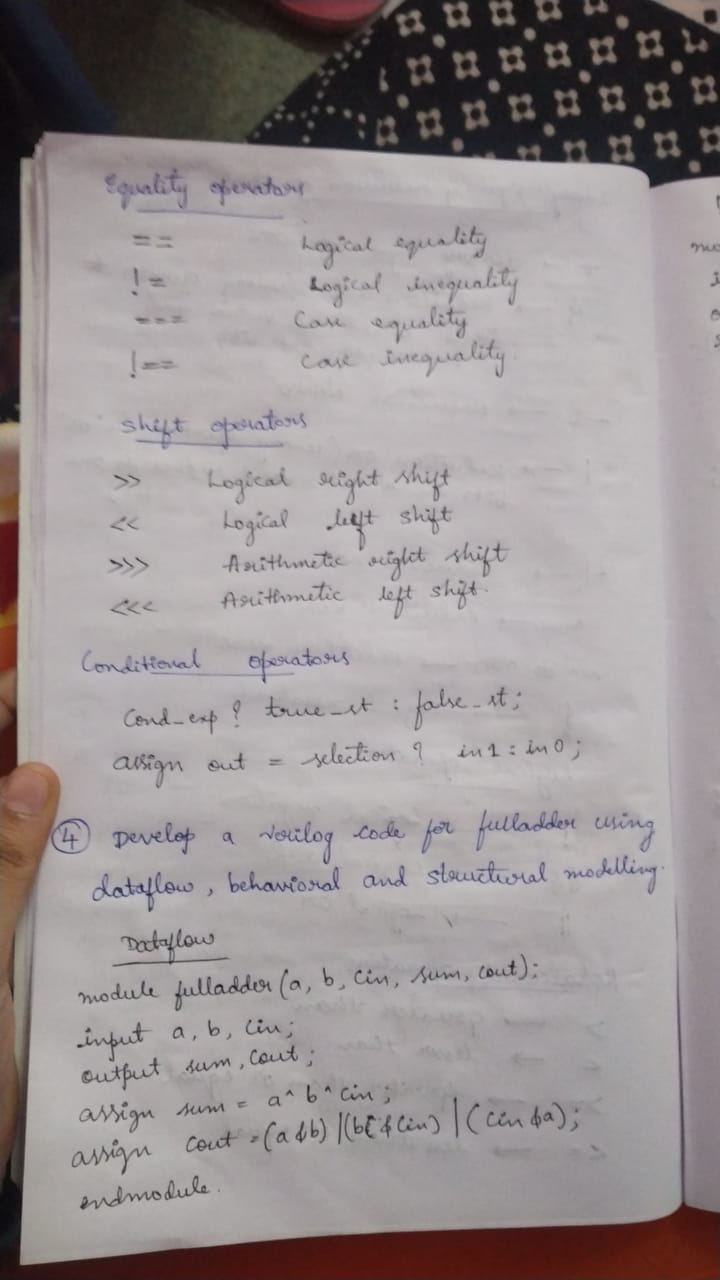 Equality operators
== Logical equality
!= Logical inequality
=== Case equality
!== Case inequality.
Shift operators
>> Logical right shift
<< Logical left shift
>>> Arithmetic right shift
<<< Arithmetic left shift.
Conditional operators
Cond_exp ? true_st : false_st;
assign out = selection ? in1 : in0;
④ Develop a verilog code for fulladder using
dataflow, behavioral and structural modelling.
Dataflow
module fulladder (a, b, cin, sum, cout);
input a, b, cin;
output sum, cout;
assign sum = a^b^cin;
assign cout = (a&b) | (b & cin) | (cin &a);
endmodule.